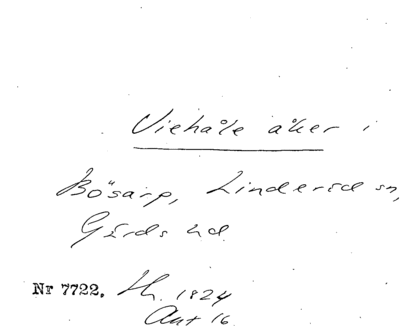 Viehåle åker i
Bösarp, Linderöd sn,
Gärds hd
Nr 7722. Sk. 1824
Akt 16